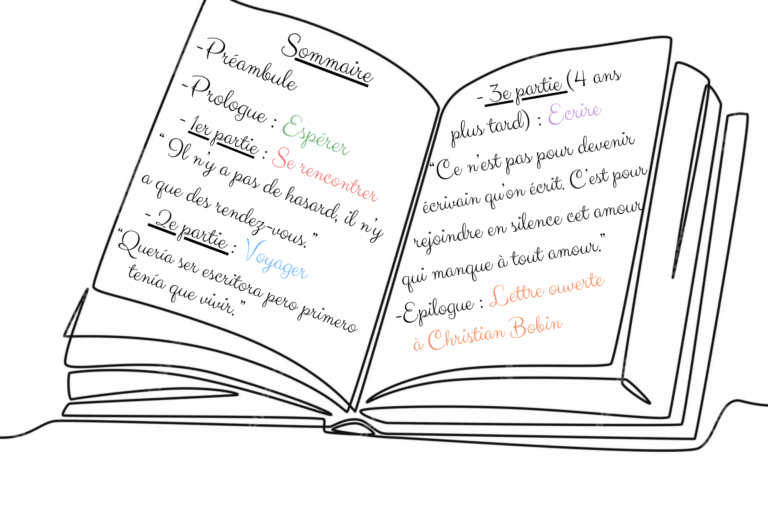 Sommaire
-Préambule
-Prologue : Espérer
- 1er partie : Se rencontrer
“ Il n'y a pas de hasard, il n'y
a que des rendez-vous. ”
- 2e partie : Voyager
“Quería ser escritora pero primero
tenía que vivir. ”
- 3e partie (4 ans
plus tard) : Ecrire
“Ce n'est pas pour devenir
écrivain qu'on écrit. C'est pour
rejoindre en silence cet amour
qui manque à tout amour.”
-Epilogue : Lettre ouverte
à Christian Bobin